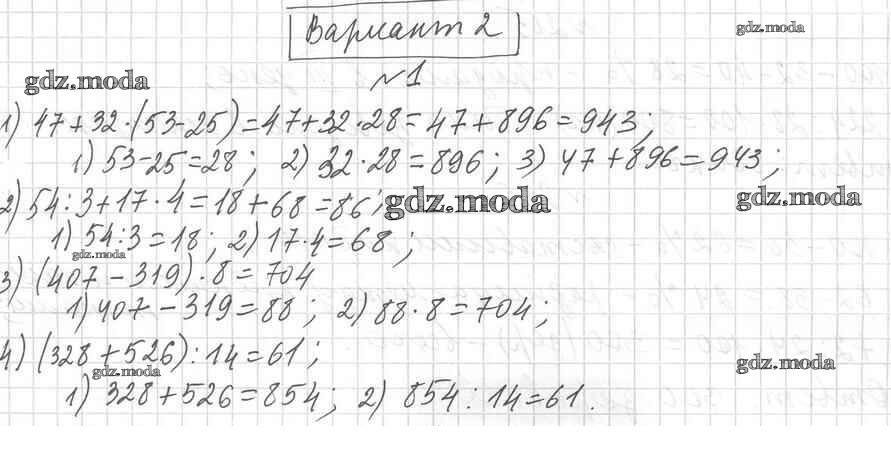 Вариант 2
gdz.moda
gdz.moda
№1
1) 47+32·(53-25)=47+32·28=47+896=943;
1) 53-25=28; 2) 32·28=896; 3) 47+896=943;
2) 54:3+17·4=18+68=86;
gdz.moda
gdz.moda
1) 54:3=18; 2) 17·4=68;
gdz.moda
3) (407-319)·8=704
1) 407-319=88; 2) 88·8=704;
4) (328+526):14=61;
gdz.moda
gdz.moda
1) 328+526=854; 2) 854:14=61.